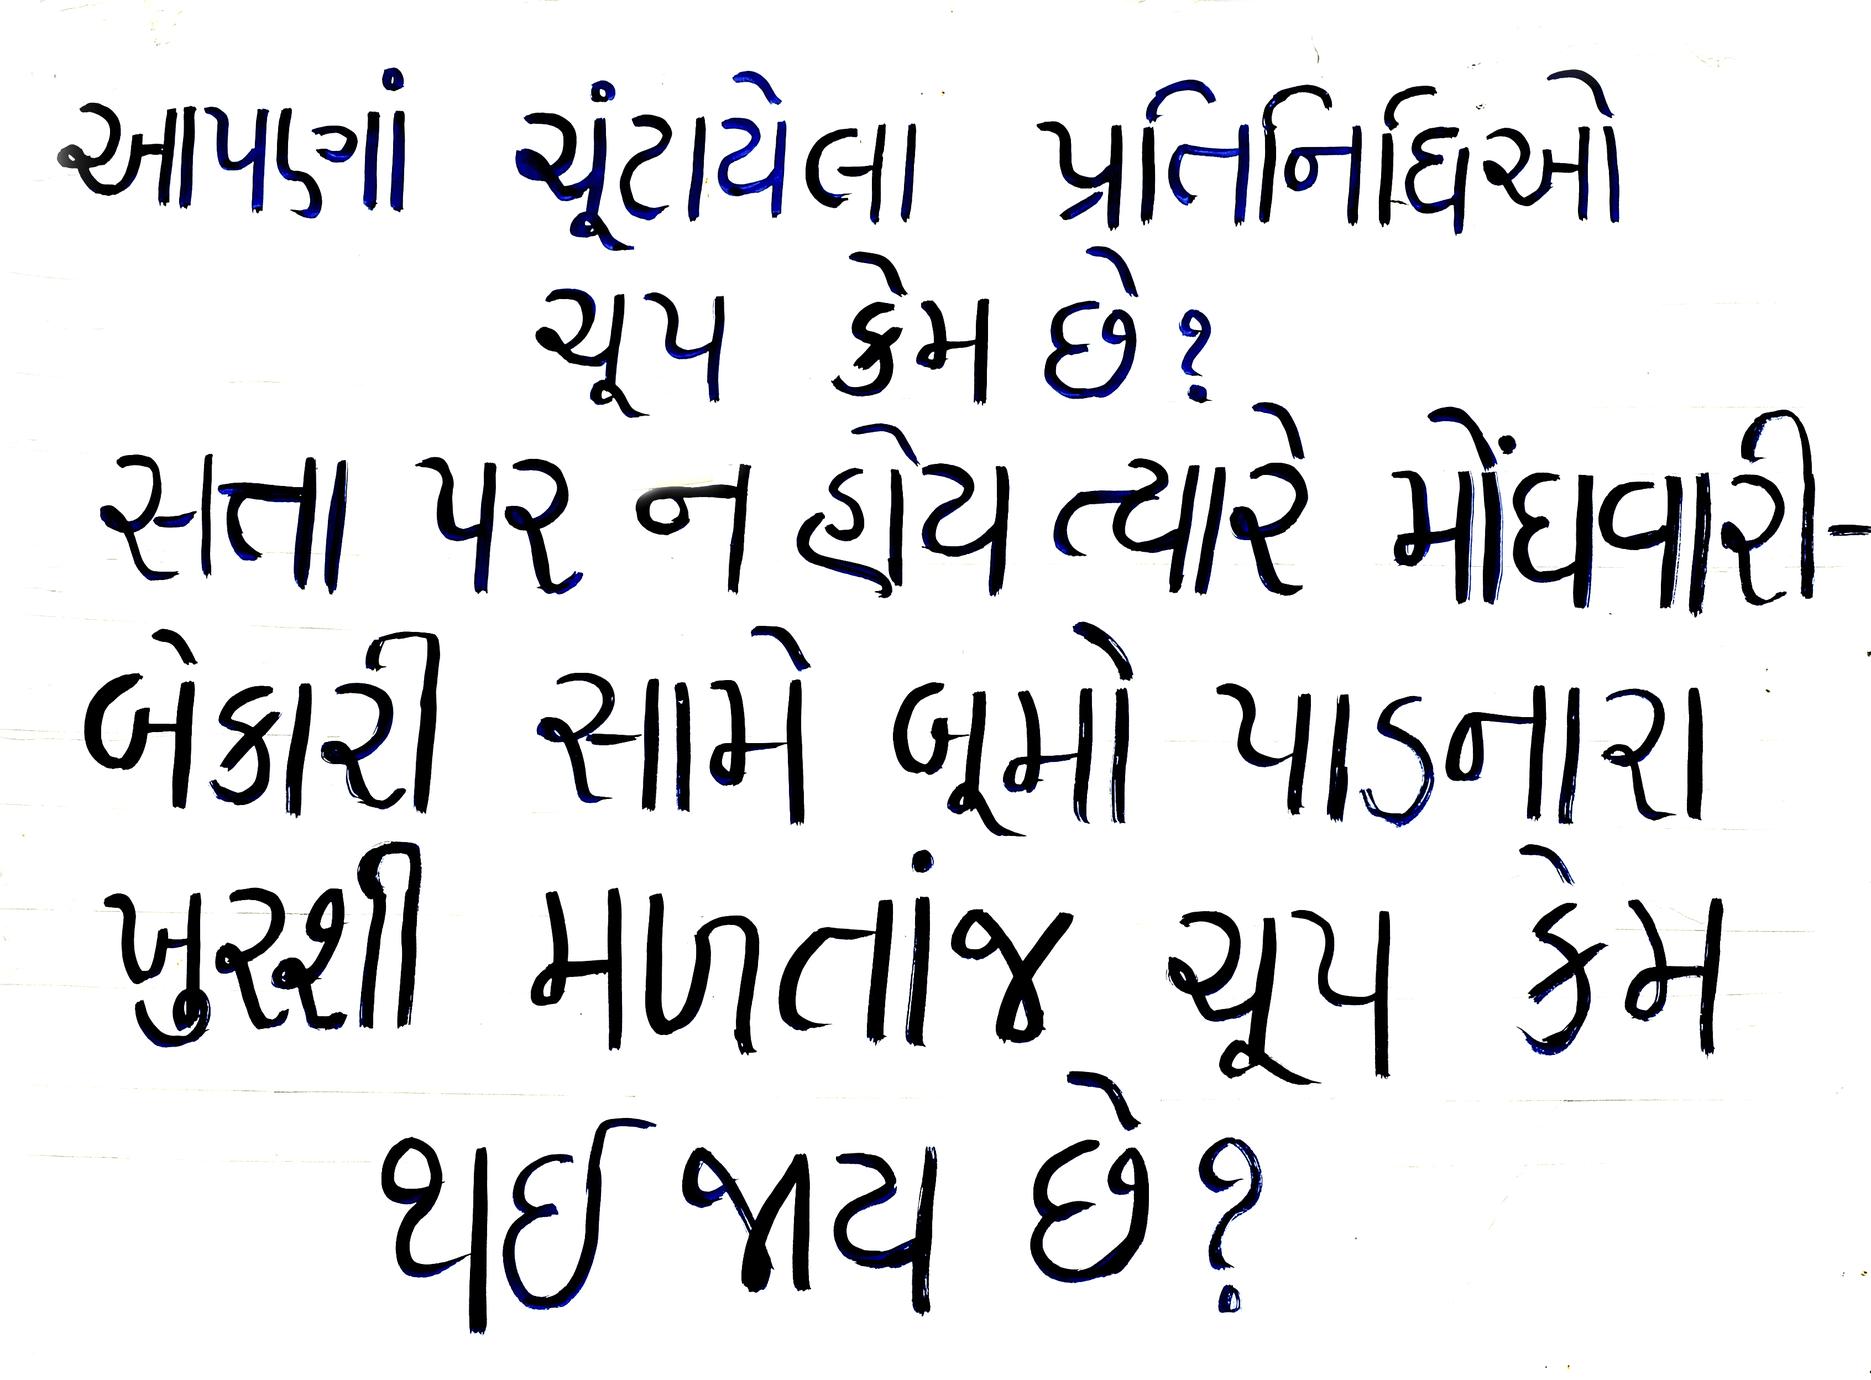 આપણાં ચૂંટાયેલા પ્રતિનિધિઓ
ચૂપ કેમ છે?
સત્તા પર ન હોય ત્યારે મોંઘવારી-
બેકારી સામે બૂમો પાડનારા
ખુરશી મળતાંજ ચૂપ કેમ
થઈ જાય છે?